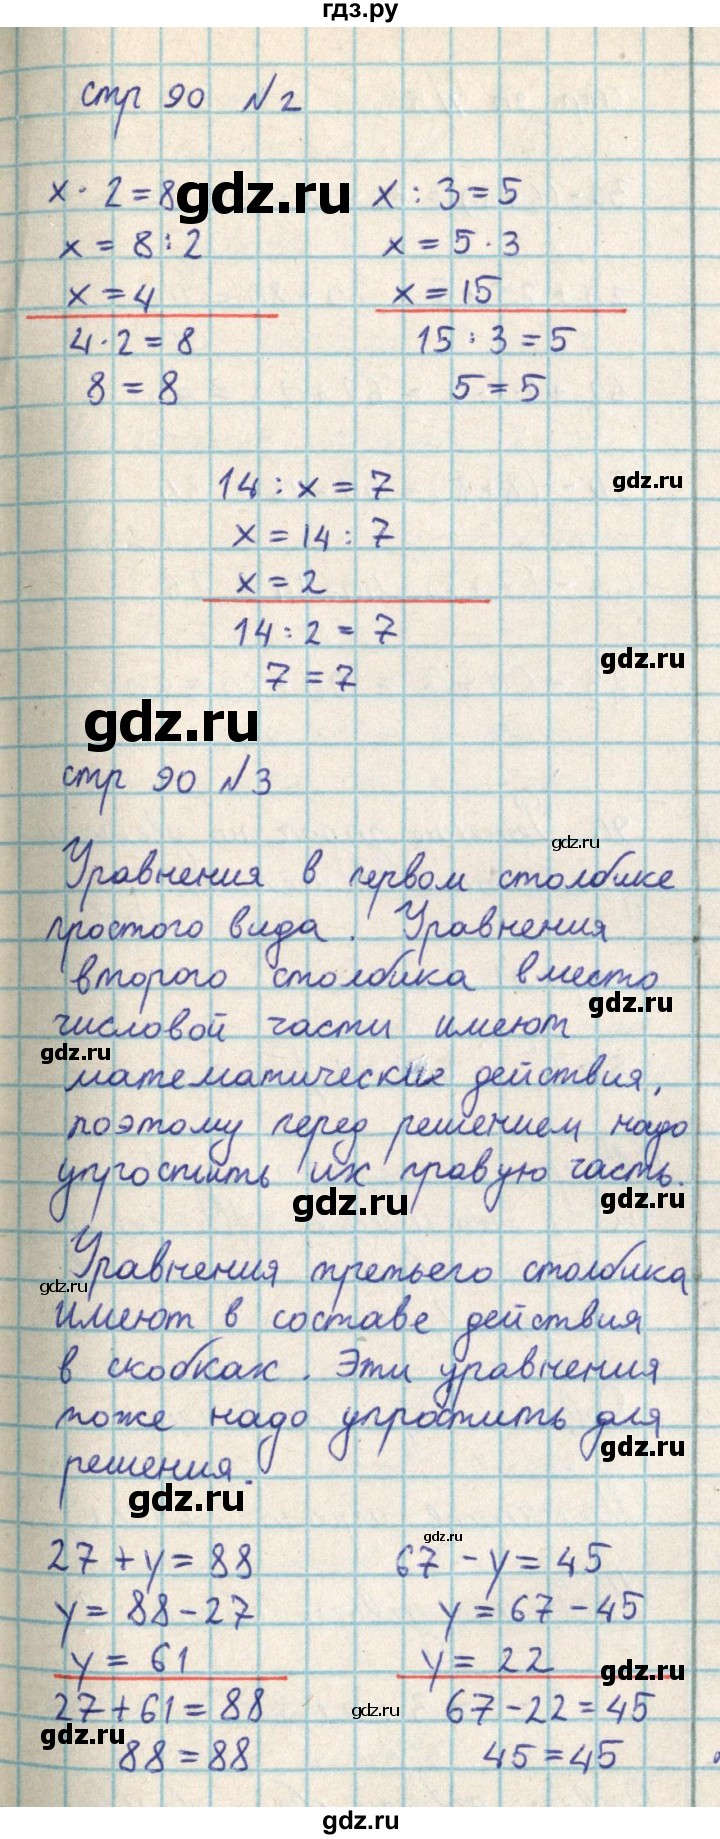 гдз.ру
стр 90 №2
x · 2 = 8 gdz.ru x : 3 = 5
x = 8 : 2 x = 5 · 3
x = 4 x = 15
4 · 2 = 8 15 : 3 = 5
8 = 8 5 = 5
14 : x = 7 gdz.ru
x = 14 : 7
x = 2
14 : 2 = 7
7 = 7 gdz.ru
gdz.ru
стр 90 №3
gdz.ru
Уравнения в первом столбике
простого вида. Уравнения
второго столбика вместо
gdz.ru
числовой части имеют
gdz.ru
математические действия,
поэтому перед решением надо
упростить их правую часть.
gdz.ru gdz.ru
Уравнения третьего столбика
gdz.ru
имеют в составе действия
в скобках. Эти уравнения
тоже надо упростить для
gdz.ru
решения.
gdz.ru
gdz.ru
27 + y = 88 67 - y = 45
y = 88 - 27 y = 67 - 45
y = 61 y = 22 gdz.ru
27 + 61 = 88 gdz.ru 67 - 22 = 45
gdz.ru
88 = 88 45 = 45
gdz.ru